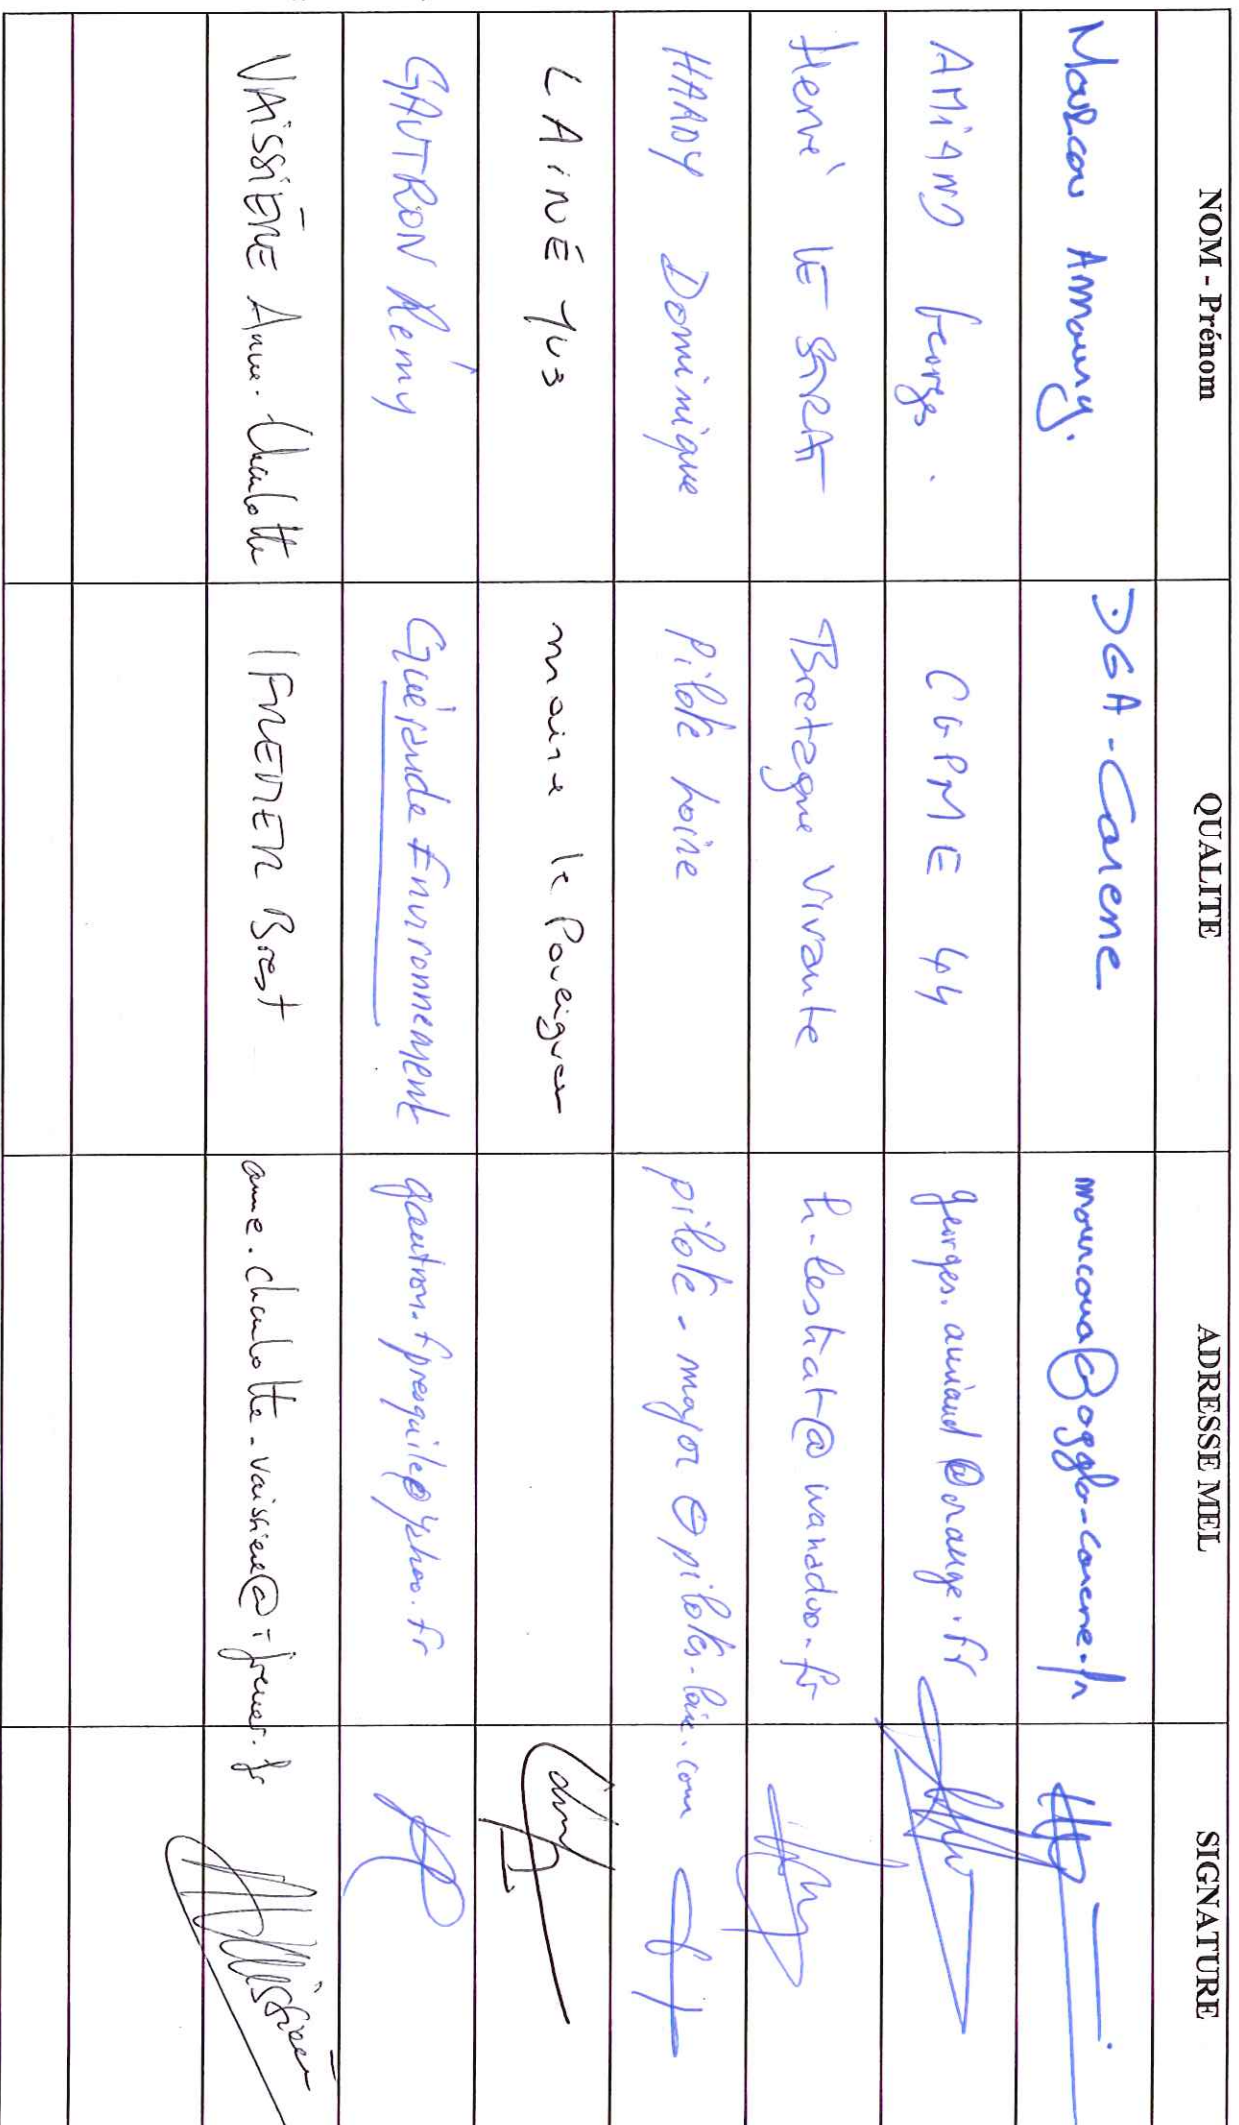 NOM - Prénom QUALITE ADRESSE MEL SIGNATURE
Amaury. DGA - Carene @agglo-carene.fr
AMIAND Georges. CGPME 44 georges.amiand@orange.fr
Hervé LE STRAT Bretagne Vivante h-lestrat@wanadoo.fr
HAADY Dominique Pilote Loire pilote-major@pilotes-loire.com
LAINÉ YVES maire le Pouliguen
GAUTRON Rémy Guérande Environnement gautron.fpresquile@yahoo.fr
VAISSIÈRE Anne-Charlotte IFREMER Brest anne.charlotte.vaissiere@ifremer.fr